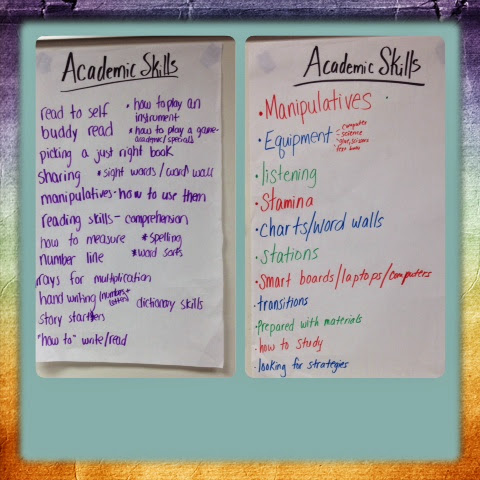 Academic Skills
read to self
• how to play an
instrument
buddy read
* how to play a game-
academic/specials
picking a just right book
sharing * sight words/word wall
manipulatives - how to use them
reading skills - comprehension
how to measure * spelling
number line * word sorts
rays for multiplication
hand writing (numbers
letters) dictionary skills
story starters
"how to" write/read
Academic Skills
• Manipulatives
• Equipment
- computer
- science
- glue, scissors
• listening
• Stamina
• charts/word walls
• stations
• Smart boards/laptops/computers
• transitions
• prepared with materials
• how to study
• looking for strategies